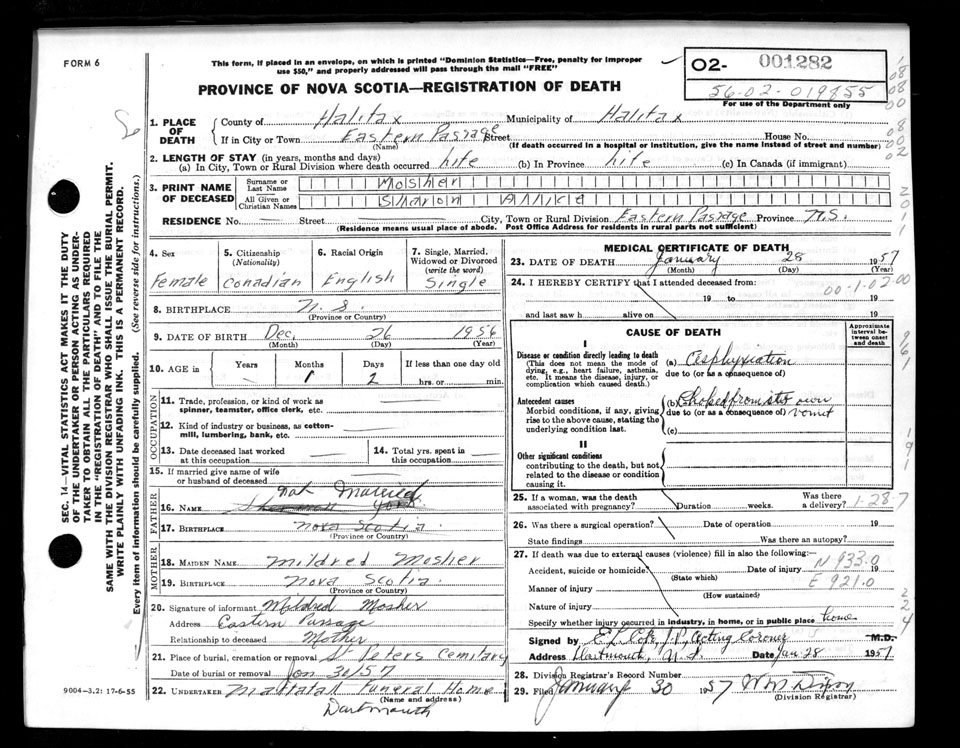 FORM 6
This form, if placed in an envelope, on which is printed "Dominion Statistics—Free, penalty for improper
use $50," and properly addressed will pass through the mail "FREE"
PROVINCE OF NOVA SCOTIA—REGISTRATION OF DEATH
02- 001282
56-02-019855
For use of the Department only
1. PLACE OF DEATH
County of Halifax Municipality of Halifax
If in City or Town Eastern Passage Street House No.
(Name) (If death occurred in a hospital or institution, give the name instead of street and number)
2. LENGTH OF STAY (in years, months and days)
(a) In City, Town or Rural Division where death occurred life (b) In Province life (c) In Canada (if immigrant)
3. PRINT NAME OF DECEASED
Surname or Last Name Mosher
All Given or Christian Names Sharon
RESIDENCE No. — Street — City, Town or Rural Division Eastern Passage Province N.S.
(Residence means usual place of abode. Post Office Address for residents in rural parts not sufficient)
4. Sex Female
5. Citizenship (Nationality) Canadian
6. Racial Origin English
7. Single, Married, Widowed or Divorced (write the word) Single
8. BIRTHPLACE N.S.
(Province or Country)
9. DATE OF BIRTH Dec. 26 1956
(Month) (Day) (Year)
10. AGE in Years — Months 1 Days 2 If less than one day old
hrs. or min.
OCCUPATION
11. Trade, profession, or kind of work as
spinner, teamster, office clerk, etc.
12. Kind of industry or business, as cotton-
mill, lumbering, bank, etc.
13. Date deceased last worked
at this occupation
14. Total yrs. spent in
this occupation
15. If married give name of wife
or husband of deceased
FATHER
not Married
16. NAME York
17. BIRTHPLACE Nova Scotia
(Province or Country)
MOTHER
18. MAIDEN NAME Mildred Mosher
19. BIRTHPLACE Nova Scotia
(Province or Country)
20. Signature of informant Mildred Mosher
Address Eastern Passage
Relationship to deceased Mother
21. Place of burial, cremation or removal St Peters Cemitary
Date of burial or removal Jan 30/57
22. UNDERTAKER Mattatall Funeral Home
(Name and address)
Dartmouth
MEDICAL CERTIFICATE OF DEATH
23. DATE OF DEATH January 28 1957
(Month) (Day) (Year)
24. I HEREBY CERTIFY that I attended deceased from:
19 to 19
and last saw h alive on 19
00-1-02-00
CAUSE OF DEATH
Approximate interval between onset and death
I
Disease or condition directly leading to death
(This does not mean the mode of
dying, e.g., heart failure, asthenia,
etc. It means the disease, injury, or
complication which caused death.)
(a) Asphyxiation
due to (or as a consequence of)
Antecedent causes
Morbid conditions, if any, giving
rise to the above cause, stating the
underlying condition last.
(b) Choked from its own
due to (or as a consequence of) vomit
(c)
II
Other significant conditions
contributing to the death, but not
related to the disease or condition
causing it.
25. If a woman, was the death
associated with pregnancy? Duration weeks. Was there a delivery? 1-28-7
26. Was there a surgical operation? Date of operation 19
State findings Was there an autopsy?
27. If death was due to external causes (violence) fill in also the following:—
Accident, suicide or homicide? Date of injury 19
(State which)
N 933.0
E 921.0
Manner of injury
(How sustained)
Nature of injury
Specify whether injury occurred in industry, in home, or in public place home
Signed by J.P. Acting Coroner M.D.
Address Dartmouth, N.S. Date Jan 28 1957
28. Division Registrar's Record Number
29. Filed January 30 1957 Wm Dixon
(Division Registrar)
SEC. 14—VITAL STATISTICS ACT MAKES IT THE DUTY
OF THE UNDERTAKER OR PERSON ACTING AS UNDER-
TAKER TO OBTAIN ALL THE PARTICULARS REQUIRED
IN THE "REGISTRATION OF DEATH" AND TO FILE THE
SAME WITH THE DIVISION REGISTRAR WHO SHALL ISSUE THE BURIAL PERMIT.
WRITE PLAINLY WITH UNFADING INK. THIS IS A PERMANENT RECORD.
Every item of information should be carefully supplied. (See reverse side for instructions.)
9004-3.2: 17-6-55